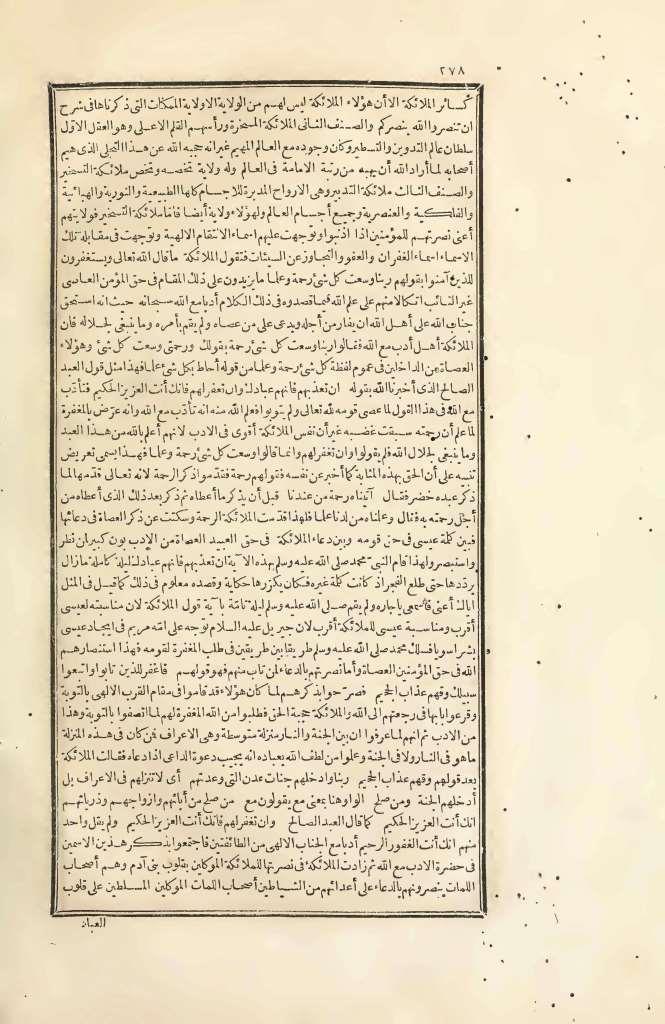 ٢٧٨
كسائر الملائكة الا أن هؤلاء الملائكة ليس لهم من الولاية الا ولاية الممكنات التى ذكرناها فى شرح
ان تنصروا الله ينصركم والصنف الثانى الملائكة المسخرة ورأسهم القلم الاعلى وهو العقل الاول
سلطان عالم التدوين والتسطير وكان وجوده مع العالم المهيم غير انه حجبه الله عن هذا التجلى الذى هيم
أصحابه لما أراد الله أن يهبه من رتبة الامامة فى العالم وله ولاية تخصه وتخص ملائكة التسخير
والصنف الثالث ملائكة التدبير وهى الارواح المدبرة للاجسام كلها الطبيعية والنورية والهبائية
والفلكية والعنصرية وجميع أجسام العالم ولهؤلاء ولاية أيضا فاما ملائكة التسخير فولايتهم
أعنى نصرتهم للمؤمنين اذا اذنبوا وتوجهت عليهم اسماء الانتقام الالهية وتوجهت فى مقابلة تلك
الاسماء اسماء الغفران والعفو والتجاوز عن السيئات فتقول الملائكة ما قال الله تعالى ويستغفرون
للذين آمنوا بقولهم ربنا وسعت كل شئ رحمة وعلما ما يزيدون على ذلك المقام فى حق المؤمن العاصى
غير التائب اتكالا منهم على علم الله فيما قصدوه فى ذلك الكلام أدبا مع الله سبحانه حيث انه استحق
جناب الله على أهل الله ان يغار من أجله ويدعى على من عصاه ولم يقم بأمره وما ينبغى لجلاله فان
الملائكة أهل أدب مع الله فقالوا ربنا وسعت كل شئ رحمة بقولك ورحمتى وسعت كل شئ وهؤلاء
العصاة من الداخلين فى عموم لفظة كل شئ رحمة وعلما من قوله أحاط بكل شئ علما فهذا مثل قول العبد
الصالح الذى أخبرنا الله بقوله ان تعذبهم فانهم عبادك وان تغفر لهم فانك أنت العزيز الحكيم فتأدب
مع الله فى هذا القول لما عصى قومه لله تعالى ولم يتوبوا فعلم الله منه انه تأدب مع الله وانه عرّض بالمغفرة
لما علم أن رحمته سبقت غضبه غير أن نفس الملائكة أقوى فى الادب لانهم أعلم بالله من هذا العبد
وما ينبغى لجلال الله فلم يقولوا وان تغفر لهم وانما قالوا وسعت كل شئ رحمة وعلما فهذا يسمى تعريض
تنبيه على أن الحق بهذه المثابة كما أخبر عن نفسه فتقولهم رحمة فقدّموا ذكر الرحمة لانه تعالى قدّمها لما
ذكر عبده خضر فقال آتيناه رحمة من عندنا قبل أن يذكر ما أعطاه ثم ذكر بعد ذلك الذى أعطاه من
أجل رحمته به فقال وعلمناه من لدنا علما فلهذا قدّمت الملائكة الرحمة وسكتت عن ذكر العصاة فى دعائها
فبين كلمة عيسى فى حق قومه وبين دعاء الملائكة فى حق العبيد العصاة من الادب بون كبير لمن نظر
واستبصر ولهذا قام النبى محمد صلى الله عليه وسلم بهذه الآية ان تعذبهم فانهم عبادك ليلة كاملة ما زال
يردّدها حتى طلع الفجر اذ كانت كلمة غيره فكان يكررها حكاية وقصده معلوم فى ذلك كما قيل فى المثل
اياك أعنى فاسمعى يا جاره ولم يقم صلى الله عليه وسلم ليلة تامّة بآية قول الملائكة لان مناسبته لعيسى
أقرب ومناسبة عيسى للملائكة أقرب لان جبريل عليه السلام توجه على امّه مريم فى ايجاد عيسى
بشرا سويا فسلك محمد صلى الله عليه وسلم طريقا بين طريقين فى طلب المغفرة لقومه فهذا استنصارهم
الله فى حق المؤمنين العصاة وأما نصرتهم بالدعاء لمن تاب منهم فهو قولهم فاغفر للذين تابوا واتبعوا
سبيلك وقهم عذاب الجحيم فصرّحوا بذكرهم لما كان هؤلاء قد قاموا فى مقام القرب الالهى بالتوبة
وقرعوا بابها فى رجعتهم الى الله والملائكة حجبة الحق فطلبوا من الله المغفرة لهم لما اتصفوا بالتوبة وهذا
من الادب ثم انهم لما عرفوا ان بين الجنة والنار منزلة متوسطة وهى الاعراف فمن كان فى هذه المنزلة
ما هو فى النار ولا فى الجنة وعلموا من لطف الله بعباده انه يجيب دعوة الداعى اذا دعاه فقالت الملائكة
بعد قولهم وقهم عذاب الجحيم ربنا وادخلهم جنات عدن التى وعدتهم أى لا تنزلهم فى الاعراف بل
أدخلهم الجنة ومن صلح الواو هنا بمعنى مع يقولون مع من صلح من آبائهم وازواجهم وذرياتهم
انك أنت العزيز الحكيم كما قال العبد الصالح وان تغفر لهم فانك أنت العزيز الحكيم ولم يقل واحد
منهم انك أنت الغفور الرحيم أدبا مع الجناب الالهى من الطائفتين فاجتمعوا بذكر هذين الاسمين
فى حضرة الادب مع الله ثم زادت الملائكة فى نصرتها الملائكة الموكلين بقلوب بنى آدم وهم أصحاب
اللمات ينصرونهم بالدعاء على أعدائهم من الشياطين أصحاب اللمات الموكلين المسلطين على قلوب
العباد